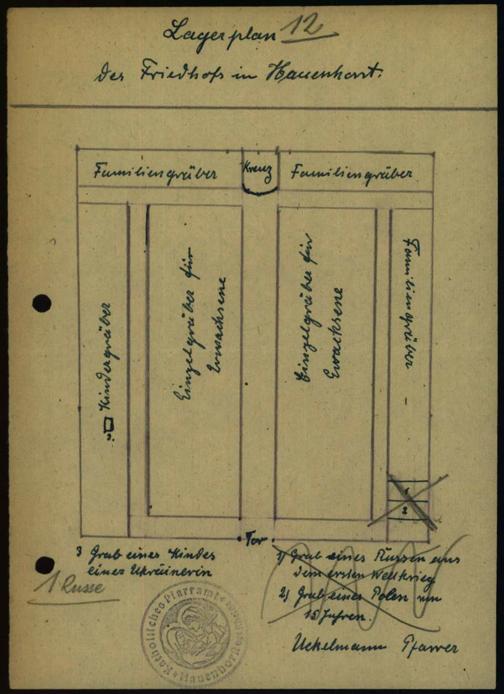 Lagerplan 12
des Friedhofs in Hauenhorst.
Familiengräber
Kreuz
Familiengräber
Kindergräber
3
Einzelgräber für
Erwachsene
Einzelgräber für
Erwachsene
Familiengräber -
1
2
Tor
3 Grab eines Kindes
einer Ukrainerin
1 Russe
1) Grab eines Russen aus
dem ersten Weltkrieg
2) Grab eines Polen von
15 Jahren.
Uekelmann Pfarrer
Katholisches Pfarramt Hauenhorst